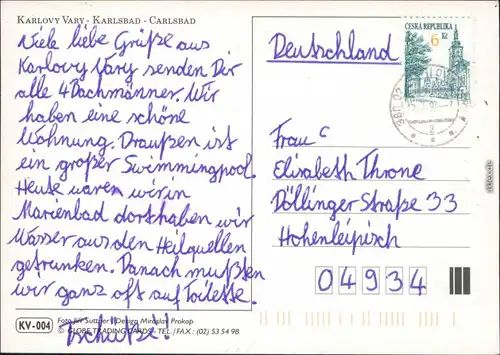 KARLOVY VARY - KARLSBAD - CARLSBAD
Viele liebe Grüße aus
Karlovy Vary senden Dir
alle 4 Dachmänner. Wir
haben eine schöne
Wohnung. Draußen ist
ein großer Swimmingpool.
Heute waren wir in
Marienbad dort haben wir
Wasser aus den Heilquellen
getrunken. Danach mußten
wir ganz oft auf Toilette.
Tschüß!!
KV-004
Foto Jiří Suttner / Design Miroslav Prokop
© GLOBE TRADING CARDS, TEL./FAX: (02) 53 54 98
ČESKÁ REPUBLIKA
6
Kč
Deutschland
Frau
Elisabeth Throne
Döllinger Straße 33
Hohenleipisch
04934